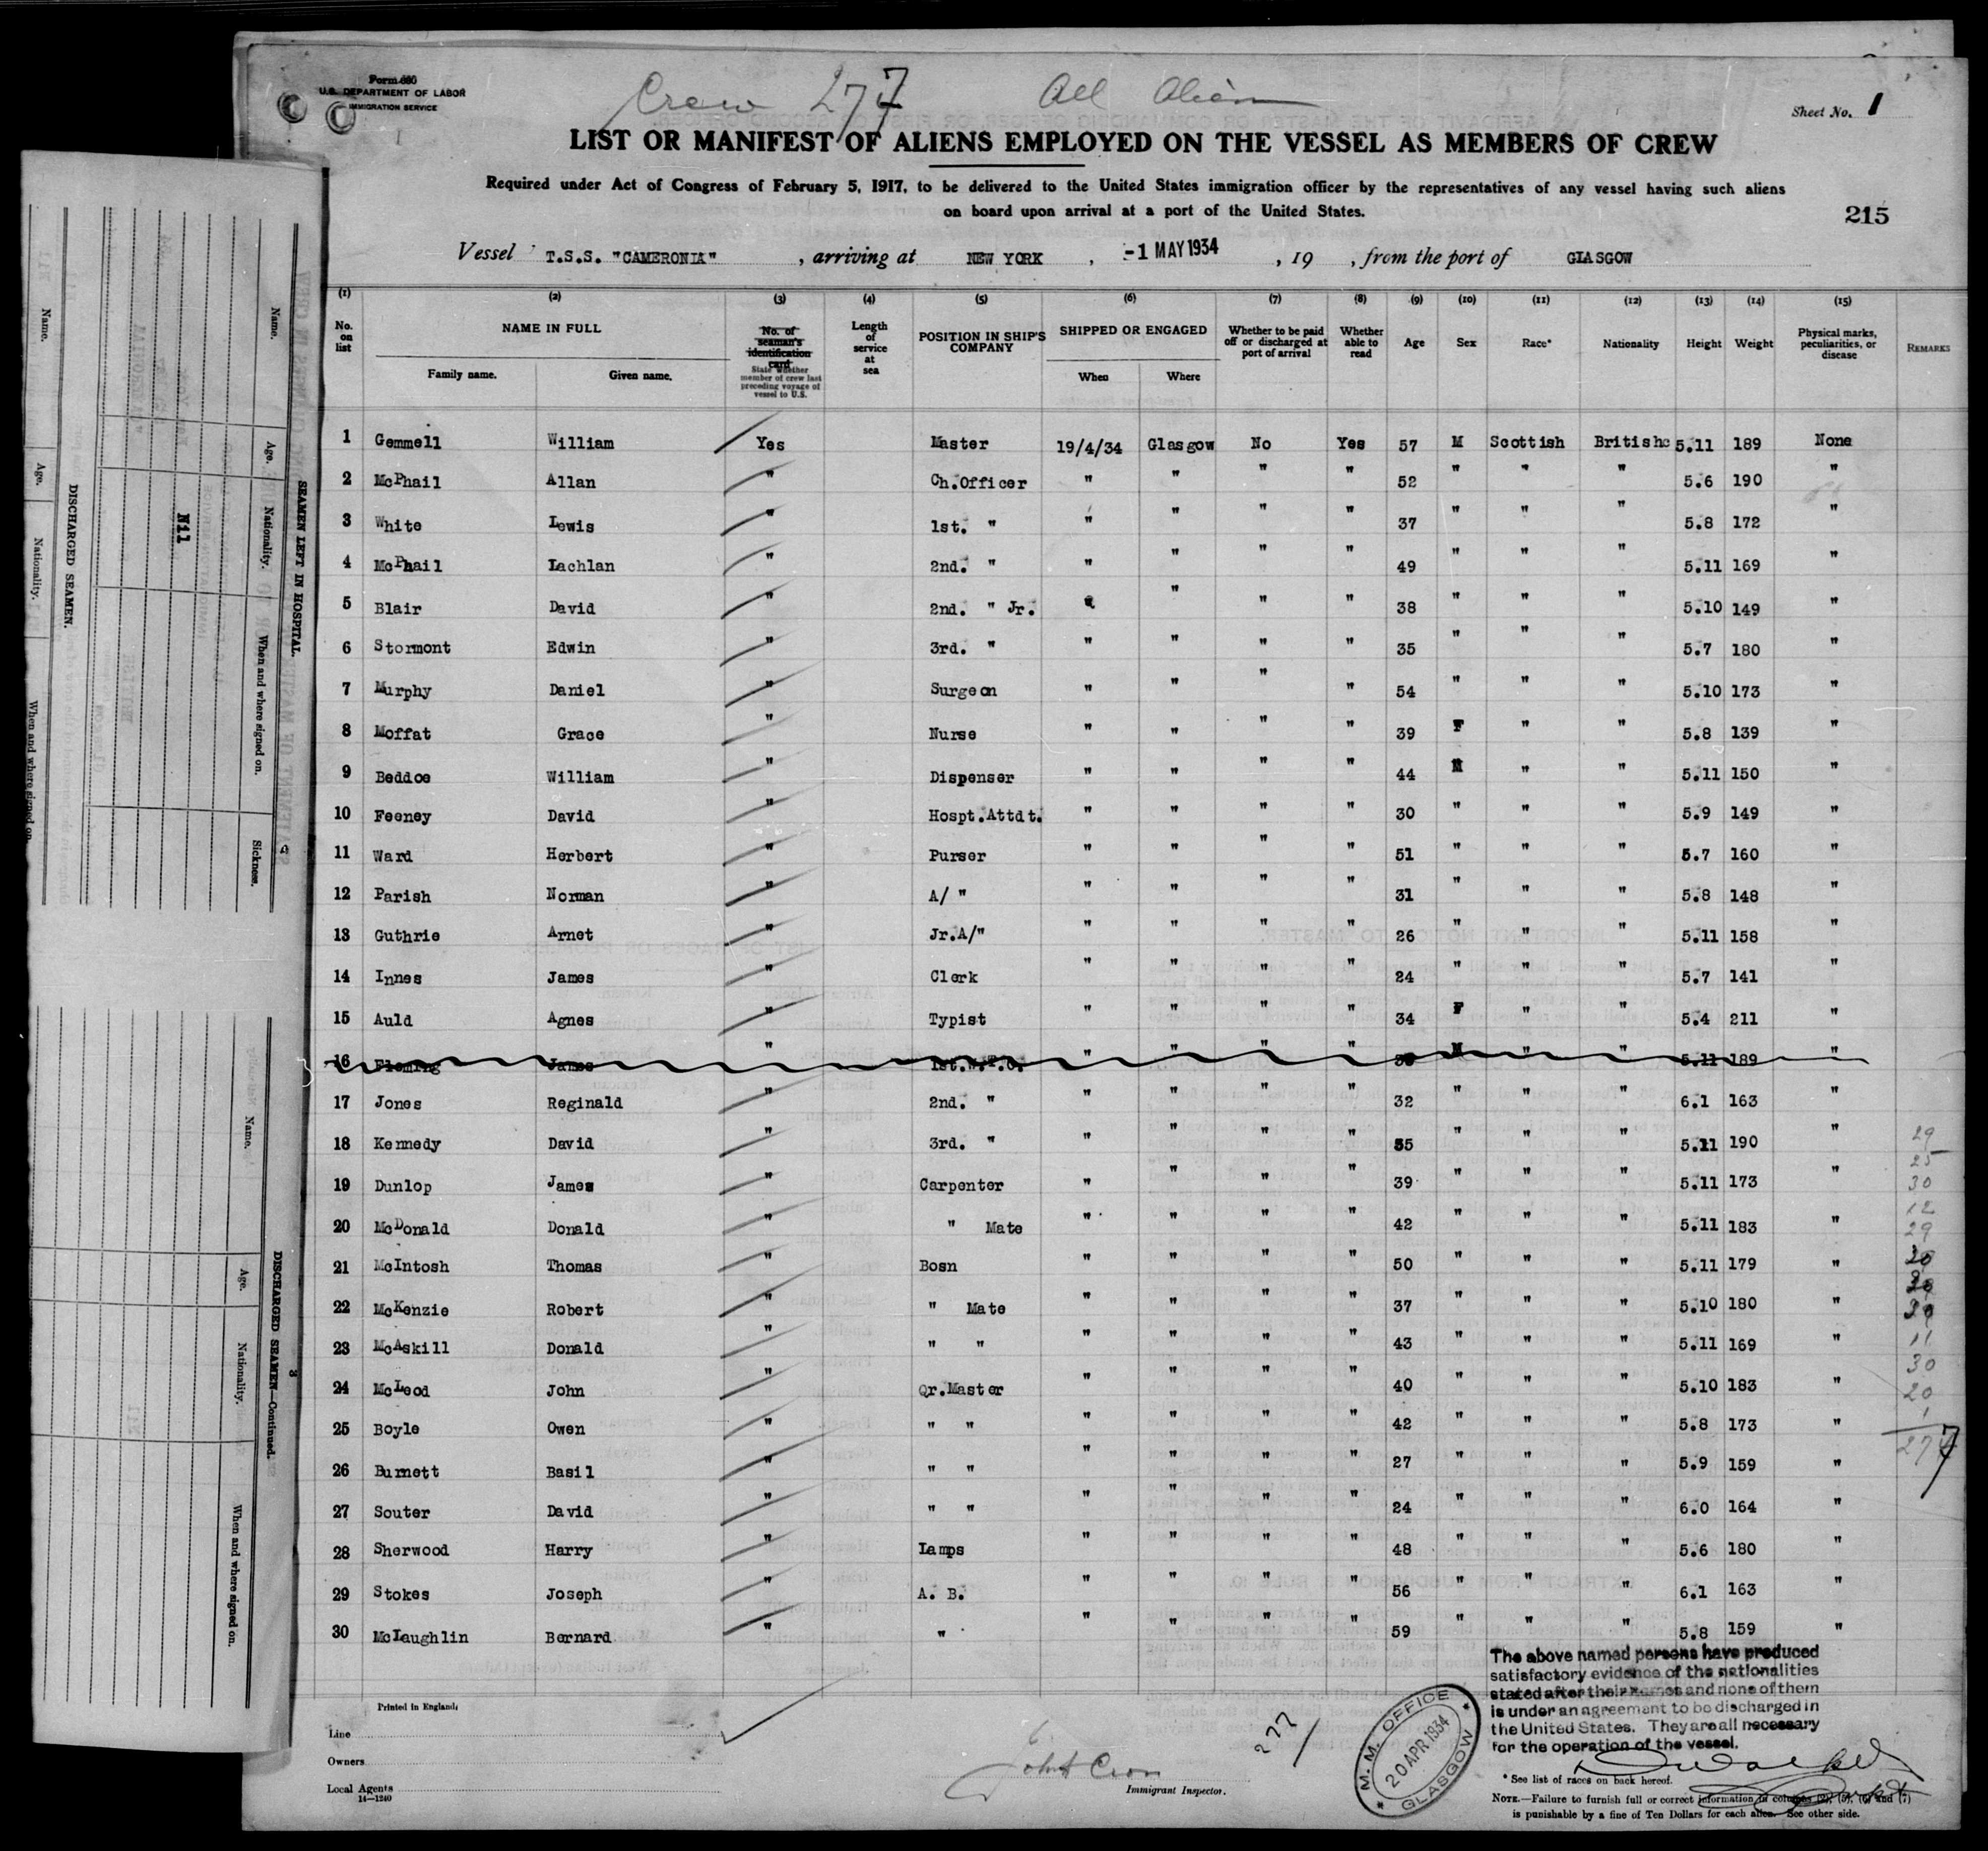 Form 680
U.S. DEPARTMENT OF LABOR
IMMIGRATION SERVICE
Crew 277 All Aliens
Sheet No. 1
LIST OR MANIFEST OF ALIENS EMPLOYED ON THE VESSEL AS MEMBERS OF CREW
Required under Act of Congress of February 5, 1917, to be delivered to the United States immigration officer by the representatives of any vessel having such aliens
on board upon arrival at a port of the United States.
215
Vessel T.S.S. "CAMERONIA", arriving at NEW YORK, -1 MAY 1934, 19 , from the port of GLASGOW
(1) (2) (3) (4) (5) (6) (7) (8) (9) (10) (11) (12) (13) (14) (15)
No. on list NAME IN FULL Family name. Given name. No. of seaman's identification card State whether member of crew last preceding voyage of vessel to U.S. Length of service at sea POSITION IN SHIP'S COMPANY SHIPPED OR ENGAGED When Where Whether to be paid off or discharged at port of arrival Whether able to read Age Sex Race* Nationality Height Weight Physical marks, peculiarities, or disease REMARKS
1 Gemmell William Yes Master 19/4/34 Glasgow No Yes 57 M Scottish British 5.11 189 None
2 McPhail Allan " Ch.Officer " " " " 52 " " " 5.6 190 "
3 White Lewis " 1st. " " " " " 37 " " " 5.8 172 "
4 McPhail Lachlan " 2nd. " " " " " 49 " " " 5.11 169 "
5 Blair David " 2nd. " Jr. " " " " 38 " " " 5.10 149 "
6 Stormont Edwin " 3rd. " " " " " 35 " " " 5.7 180 "
7 Murphy Daniel " Surgeon " " " " 54 " " " 5.10 173 "
8 Moffat Grace " Nurse " " " " 39 F " " 5.8 139 "
9 Beddoe William " Dispenser " " " " 44 M " " 5.11 150 "
10 Feeney David " Hospt.Attdt. " " " " 30 " " " 5.9 149 "
11 Ward Herbert " Purser " " " " 51 " " " 5.7 160 "
12 Parish Norman " A/ " " " " " 31 " " " 5.8 148 "
13 Guthrie Arnet " Jr.A/" " " " " 26 " " " 5.11 158 "
14 Innes James " Clerk " " " " 24 " " " 5.7 141 "
15 Auld Agnes " Typist " " " " 34 F " " 5.4 211 "
16 Fleming James " 1st.W.T.O. " " " " M " " 5.11 189 "
17 Jones Reginald " 2nd. " " " " " 32 " " " 6.1 163 "
18 Kennedy David " 3rd. " " " " " 35 " " " 5.11 190 "
19 Dunlop James " Carpenter " " " " 39 " " " 5.11 173 "
20 McDonald Donald " " Mate " " " " 42 " " " 5.11 183 "
21 McIntosh Thomas " Bosn " " " " 50 " " " 5.11 179 "
22 McKenzie Robert " " Mate " " " " 37 " " " 5.10 180 "
23 McAskill Donald " " " " " " " 43 " " " 5.11 169 "
24 McLeod John " Qr.Master " " " " 40 " " " 5.10 183 "
25 Boyle Owen " " " " " " " 42 " " " 5.8 173 "
26 Burnett Basil " " " " " " " 27 " " " 5.9 159 "
27 Souter David " " " " " " " 24 " " " 6.0 164 "
28 Sherwood Harry " Lamps " " " " 48 " " " 5.6 180 "
29 Stokes Joseph " A. B. " " " " 56 " " " 6.1 163 "
30 McLaughlin Bernard " " " " " " 59 " " " 5.8 159 "
29
25
30
12
29
11
30
20
1
277
The above named persons have produced
satisfactory evidence of the nationalities
stated after their names and none of them
is under an agreement to be discharged in
the United States. They are all necessary
for the operation of the vessel.
Printed in England.
Line
Owners
Local Agents
14—1240
Immigrant Inspector.
277
M. M. OFFICE
20 APR 1934
GLASGOW
* See list of races on back hereof.
NOTE.—Failure to furnish full or correct information in columns (2), (5), (6) and (7)
is punishable by a fine of Ten Dollars for each alien. See other side.
SEAMEN LEFT IN HOSPITAL.
Name. Age. Nationality. When and where signed on. Sickness.
Nil
DISCHARGED SEAMEN.
Name. Age. Nationality. When and where signed on.
DISCHARGED SEAMEN—Continued.
Name. Age. Nationality. When and where signed on.
3